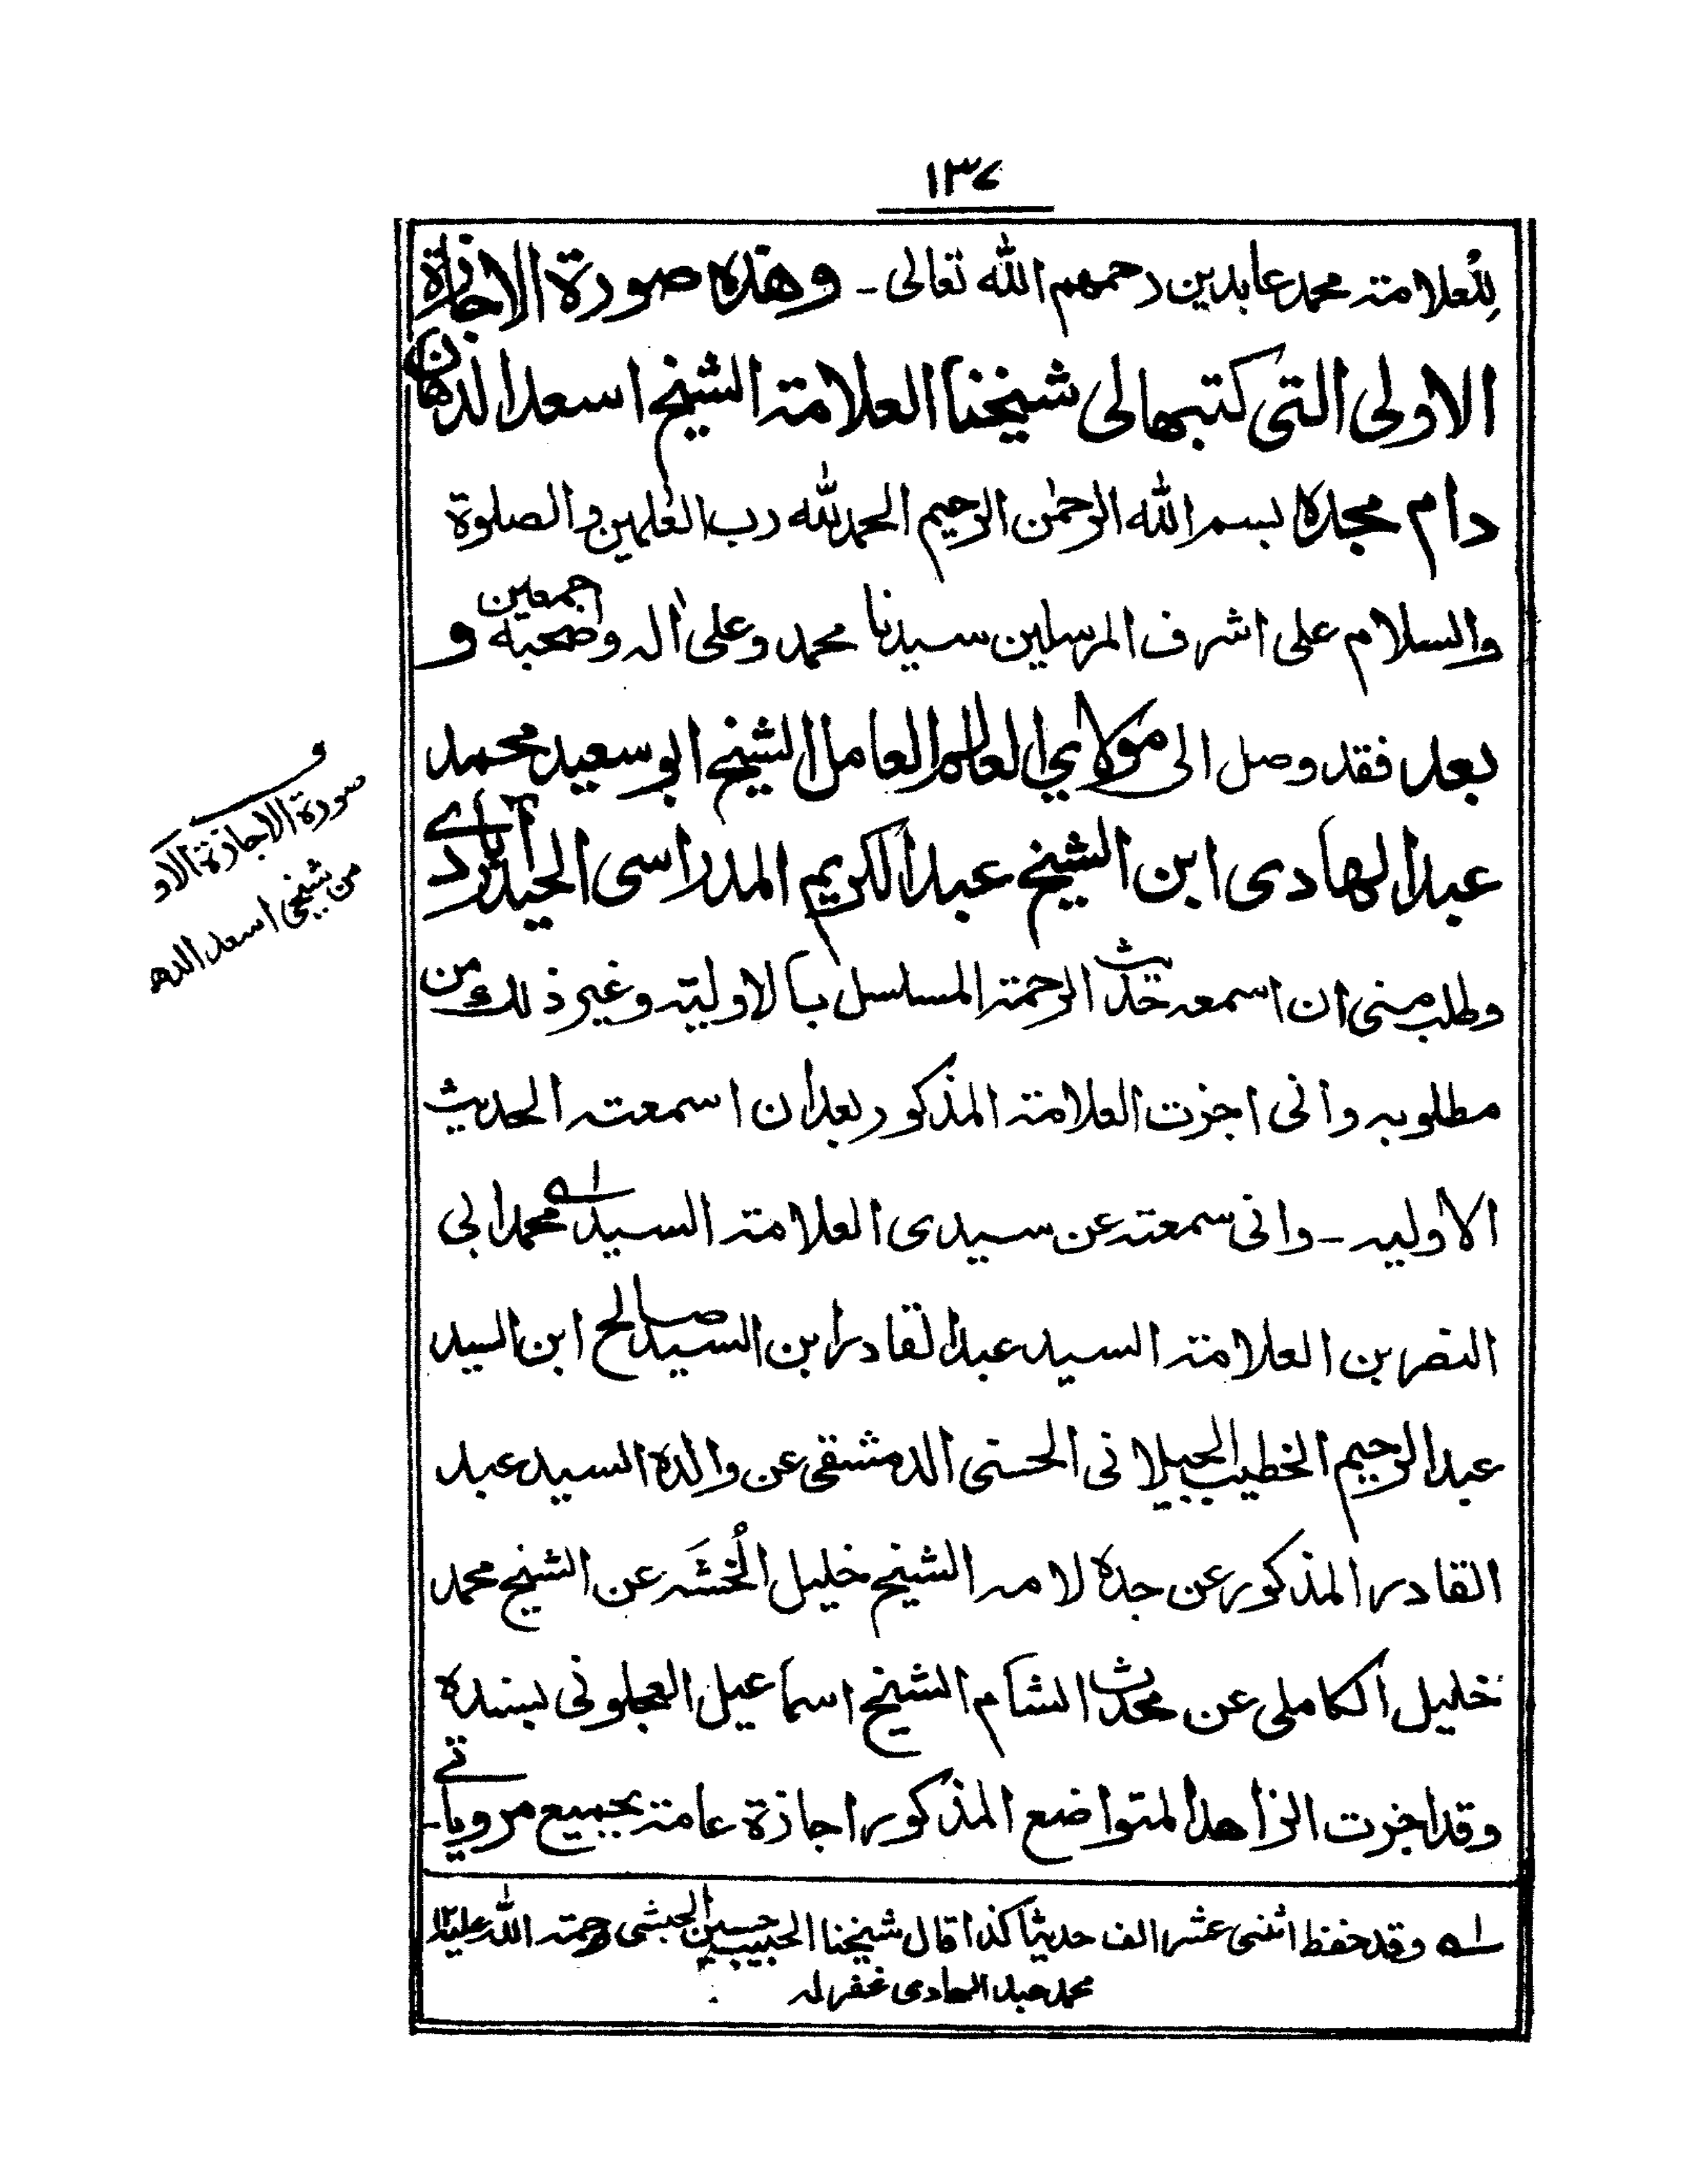 ١٣٧
للعلامة محمد عابدين رحمهم الله تعالى ـ وهذه صورة الاجازة
الاولى التى كتبها لى شيخنا العلامة الشيخ اسعد الدهان
دام مجده بسم الله الرحمٰن الرحيم الحمد لله رب العٰلمين والصلوة
والسلام على اشرف المرسلين سيدنا محمد وعلى اٰله وصحبه اجمعين و
بعد فقد وصل الى مولاي العالم العامل الشيخ ابو سعيد محمد
عبد الهادى ابن الشيخ عبد الكريم المدراسى الحيدرآبادى
وطلب منى ان اسمعه حديث الرحمة المسلسل بالاولية وغير ذلك من
مطلوبه وانى اجزت العلامة المذكور بعد ان اسمعته الحديث
الاوليه ـ وانى سمعته عن سيدى العلامة السيد محمد ابى ؎١
النصر بن العلامة السيد عبد القادر ابن السيد صالح ابن السيد
عبد الرحيم الخطيب الجيلانى الحسنى الدمشقى عن والده السيد عبد
القادر المذكور عن جده لامه الشيخ خليل الخُشَه عن الشيخ محمد
خليل الكاملى عن محدث الشام الشيخ اسماعيل العجلونى بسنده
وقد اجزت الزاهد المتواضع المذكور اجازة عامة بجميع مروياتى ـ
؎١ وقد حفظ اثنى عشر الف حديثا كذا قال شيخنا الحبيب حسين الحبشى رحمة الله عليه ١٢
محمد عبد الهادى غفر له
صورة الاجازة الاو
من شيخى اسعد الده